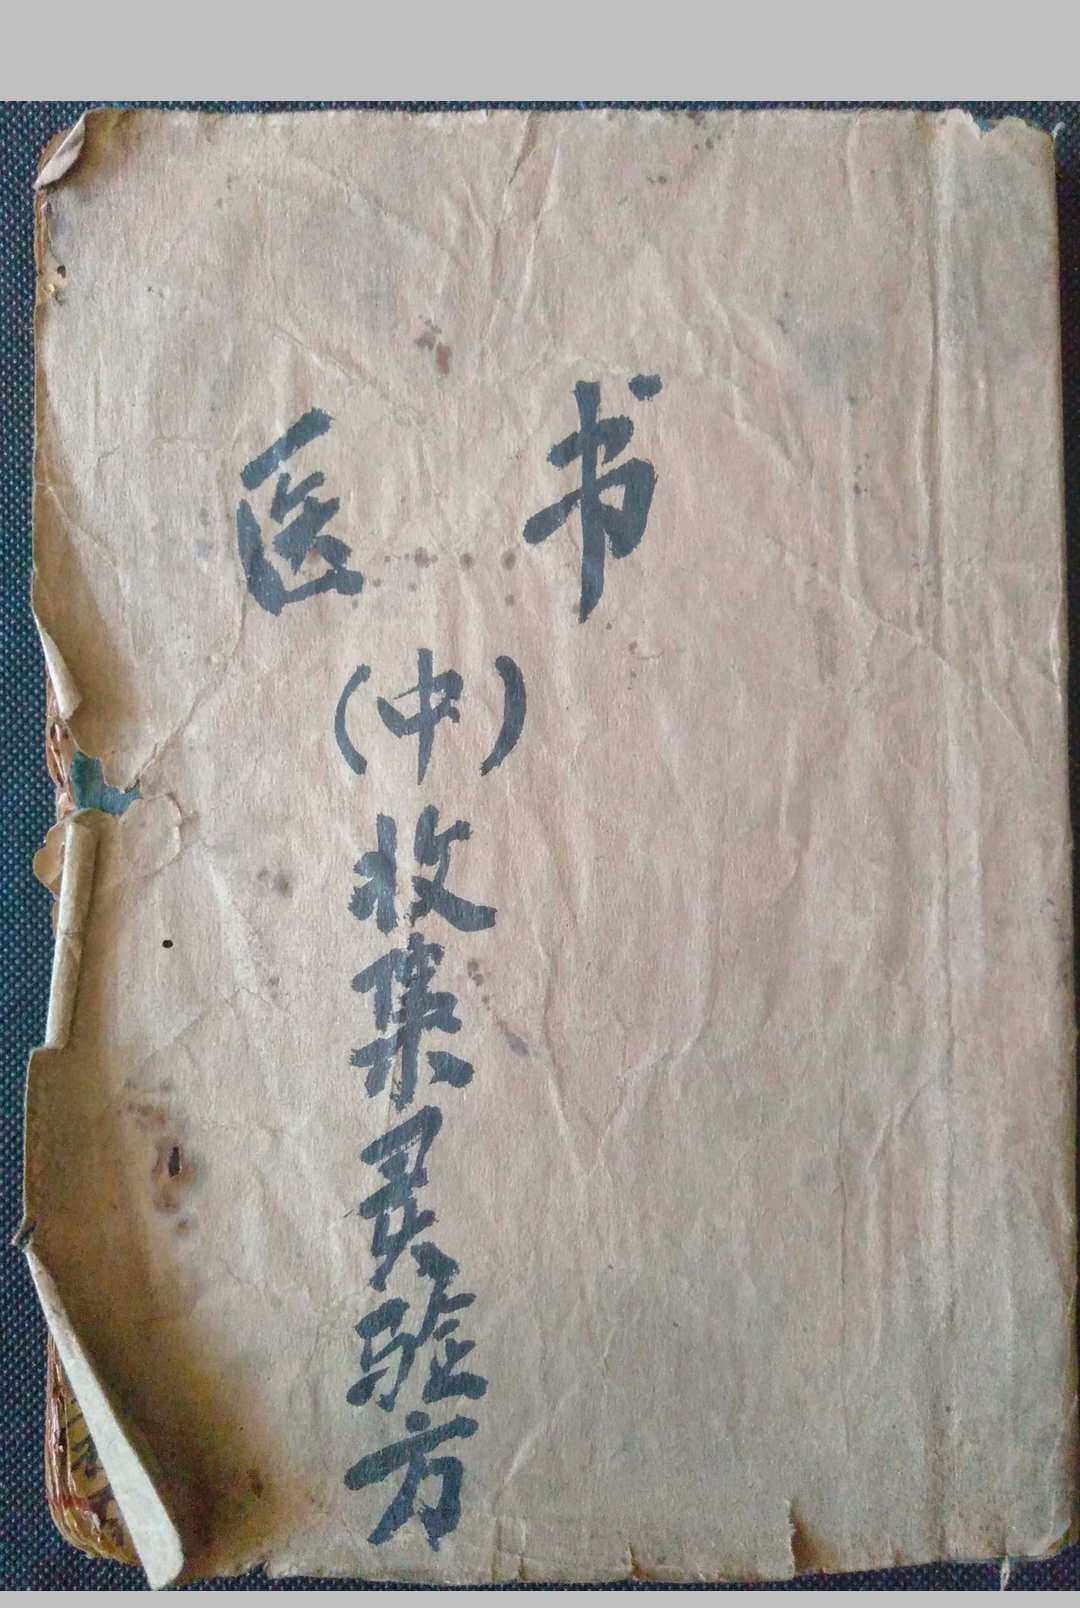 医书
(中)
收集灵验方